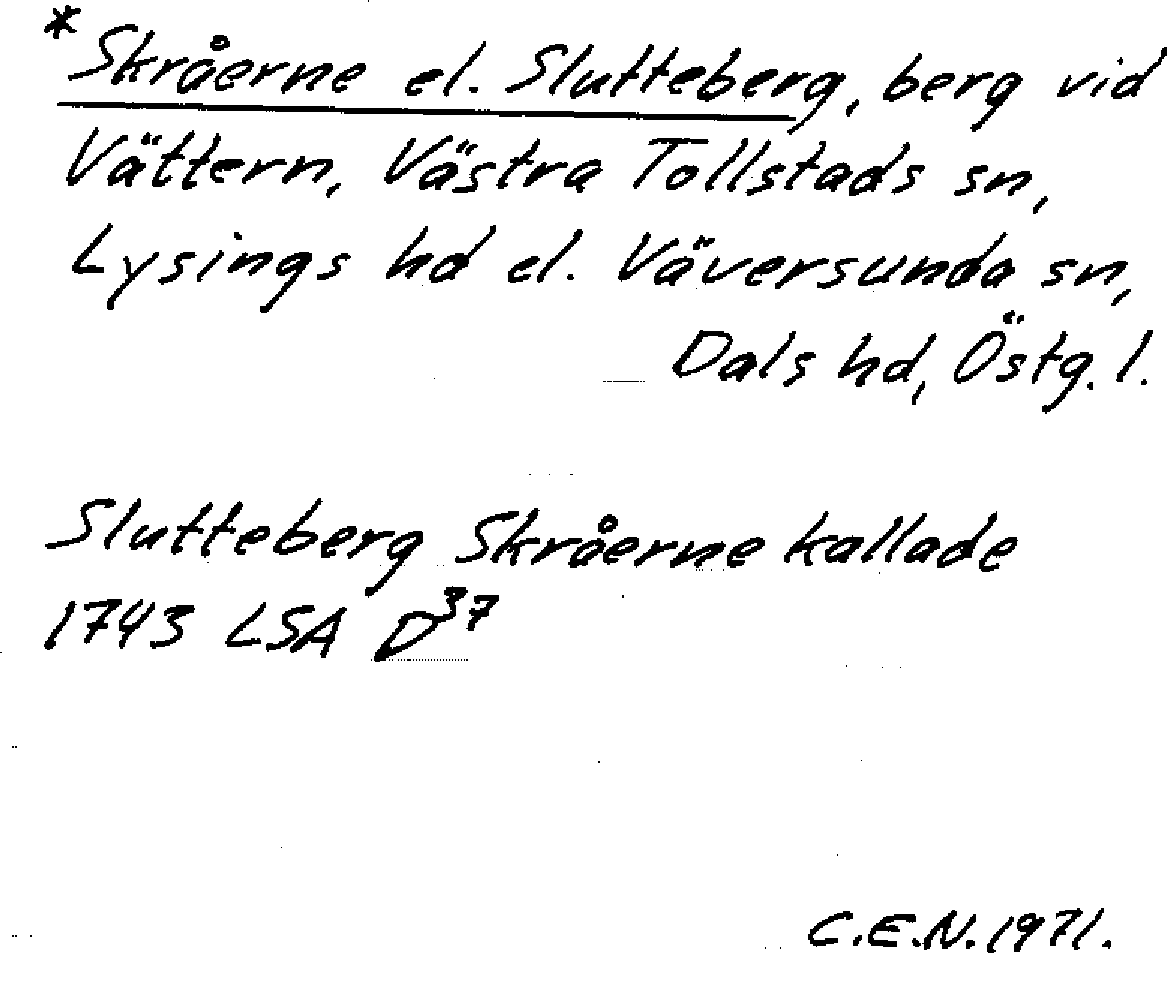 *Skråerne el. Slutteberg, berg vid
Vättern, Västra Tollstads sn,
Lysings hd el. Väversunda sn,
Dals hd, Östg. l.
Slutteberg Skråerne kallade
1743 LSA D³⁷
C.E.N. 1971.